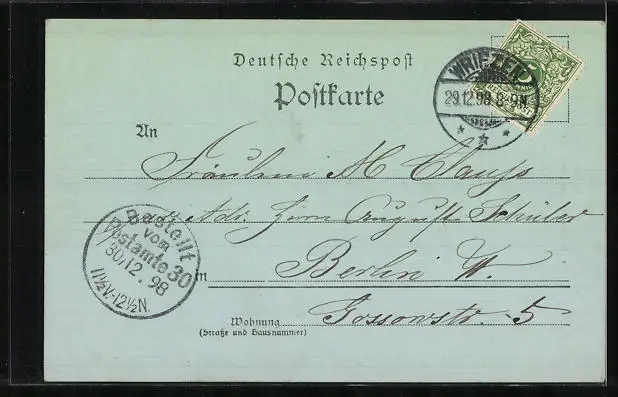 Deutsche Reichspost
Postkarte
WRIEZEN
29.12.98 8-9N.
An
Fräulein M Clauss
Adr. Herrn August Schüler
in Berlin W.
Gossowstr. 5
Wohnung
(Straße und Hausnummer)
Bestellt
vom
Postamte 30
30/12. 98
11½V.-12½N.